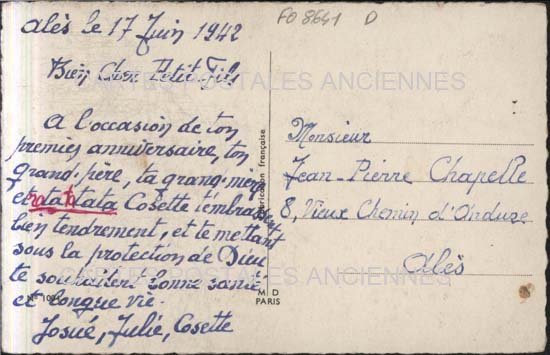 FO 8641 D
Alès le 17 Juin 1942
Bien Cher Petit Fils
A l'occasion de ton
premier anniversaire, ton
grand-père, ta grand-mère
et ta tata Cosette t'embrassent
bien tendrement, et te mettant
sous la protection de Dieu
te souhaitent bonne santé
et longue vie.
Josué, Julie, Cosette
N° 109
Fabrication française
M D
PARIS
Monsieur
Jean-Pierre Chapelle
8, Vieux Chemin d'Onduze
Alès
CARTES POSTALES ANCIENNES
CARTES POSTALES ANCIENNES